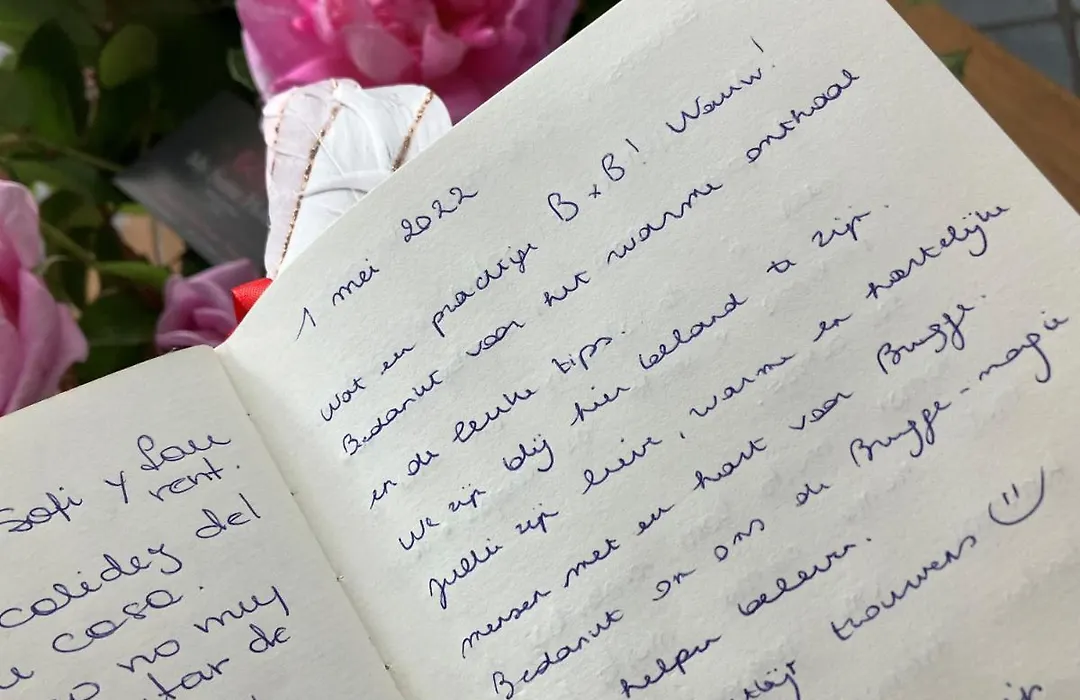 Sofi y Lau
rent.
calidez del
casa.
no muy
de
1 mei 2022
Wat een prachtige B&B! Wauw!
Bedankt voor het warme onthaal
en de leuke tips.
We zijn blij hier beland te zijn.
Jullie zijn lieve, warme en hartelijke
mensen met een hart voor Brugge.
Bedankt om ons de Brugge-magie
helpen beleven.
trouwens